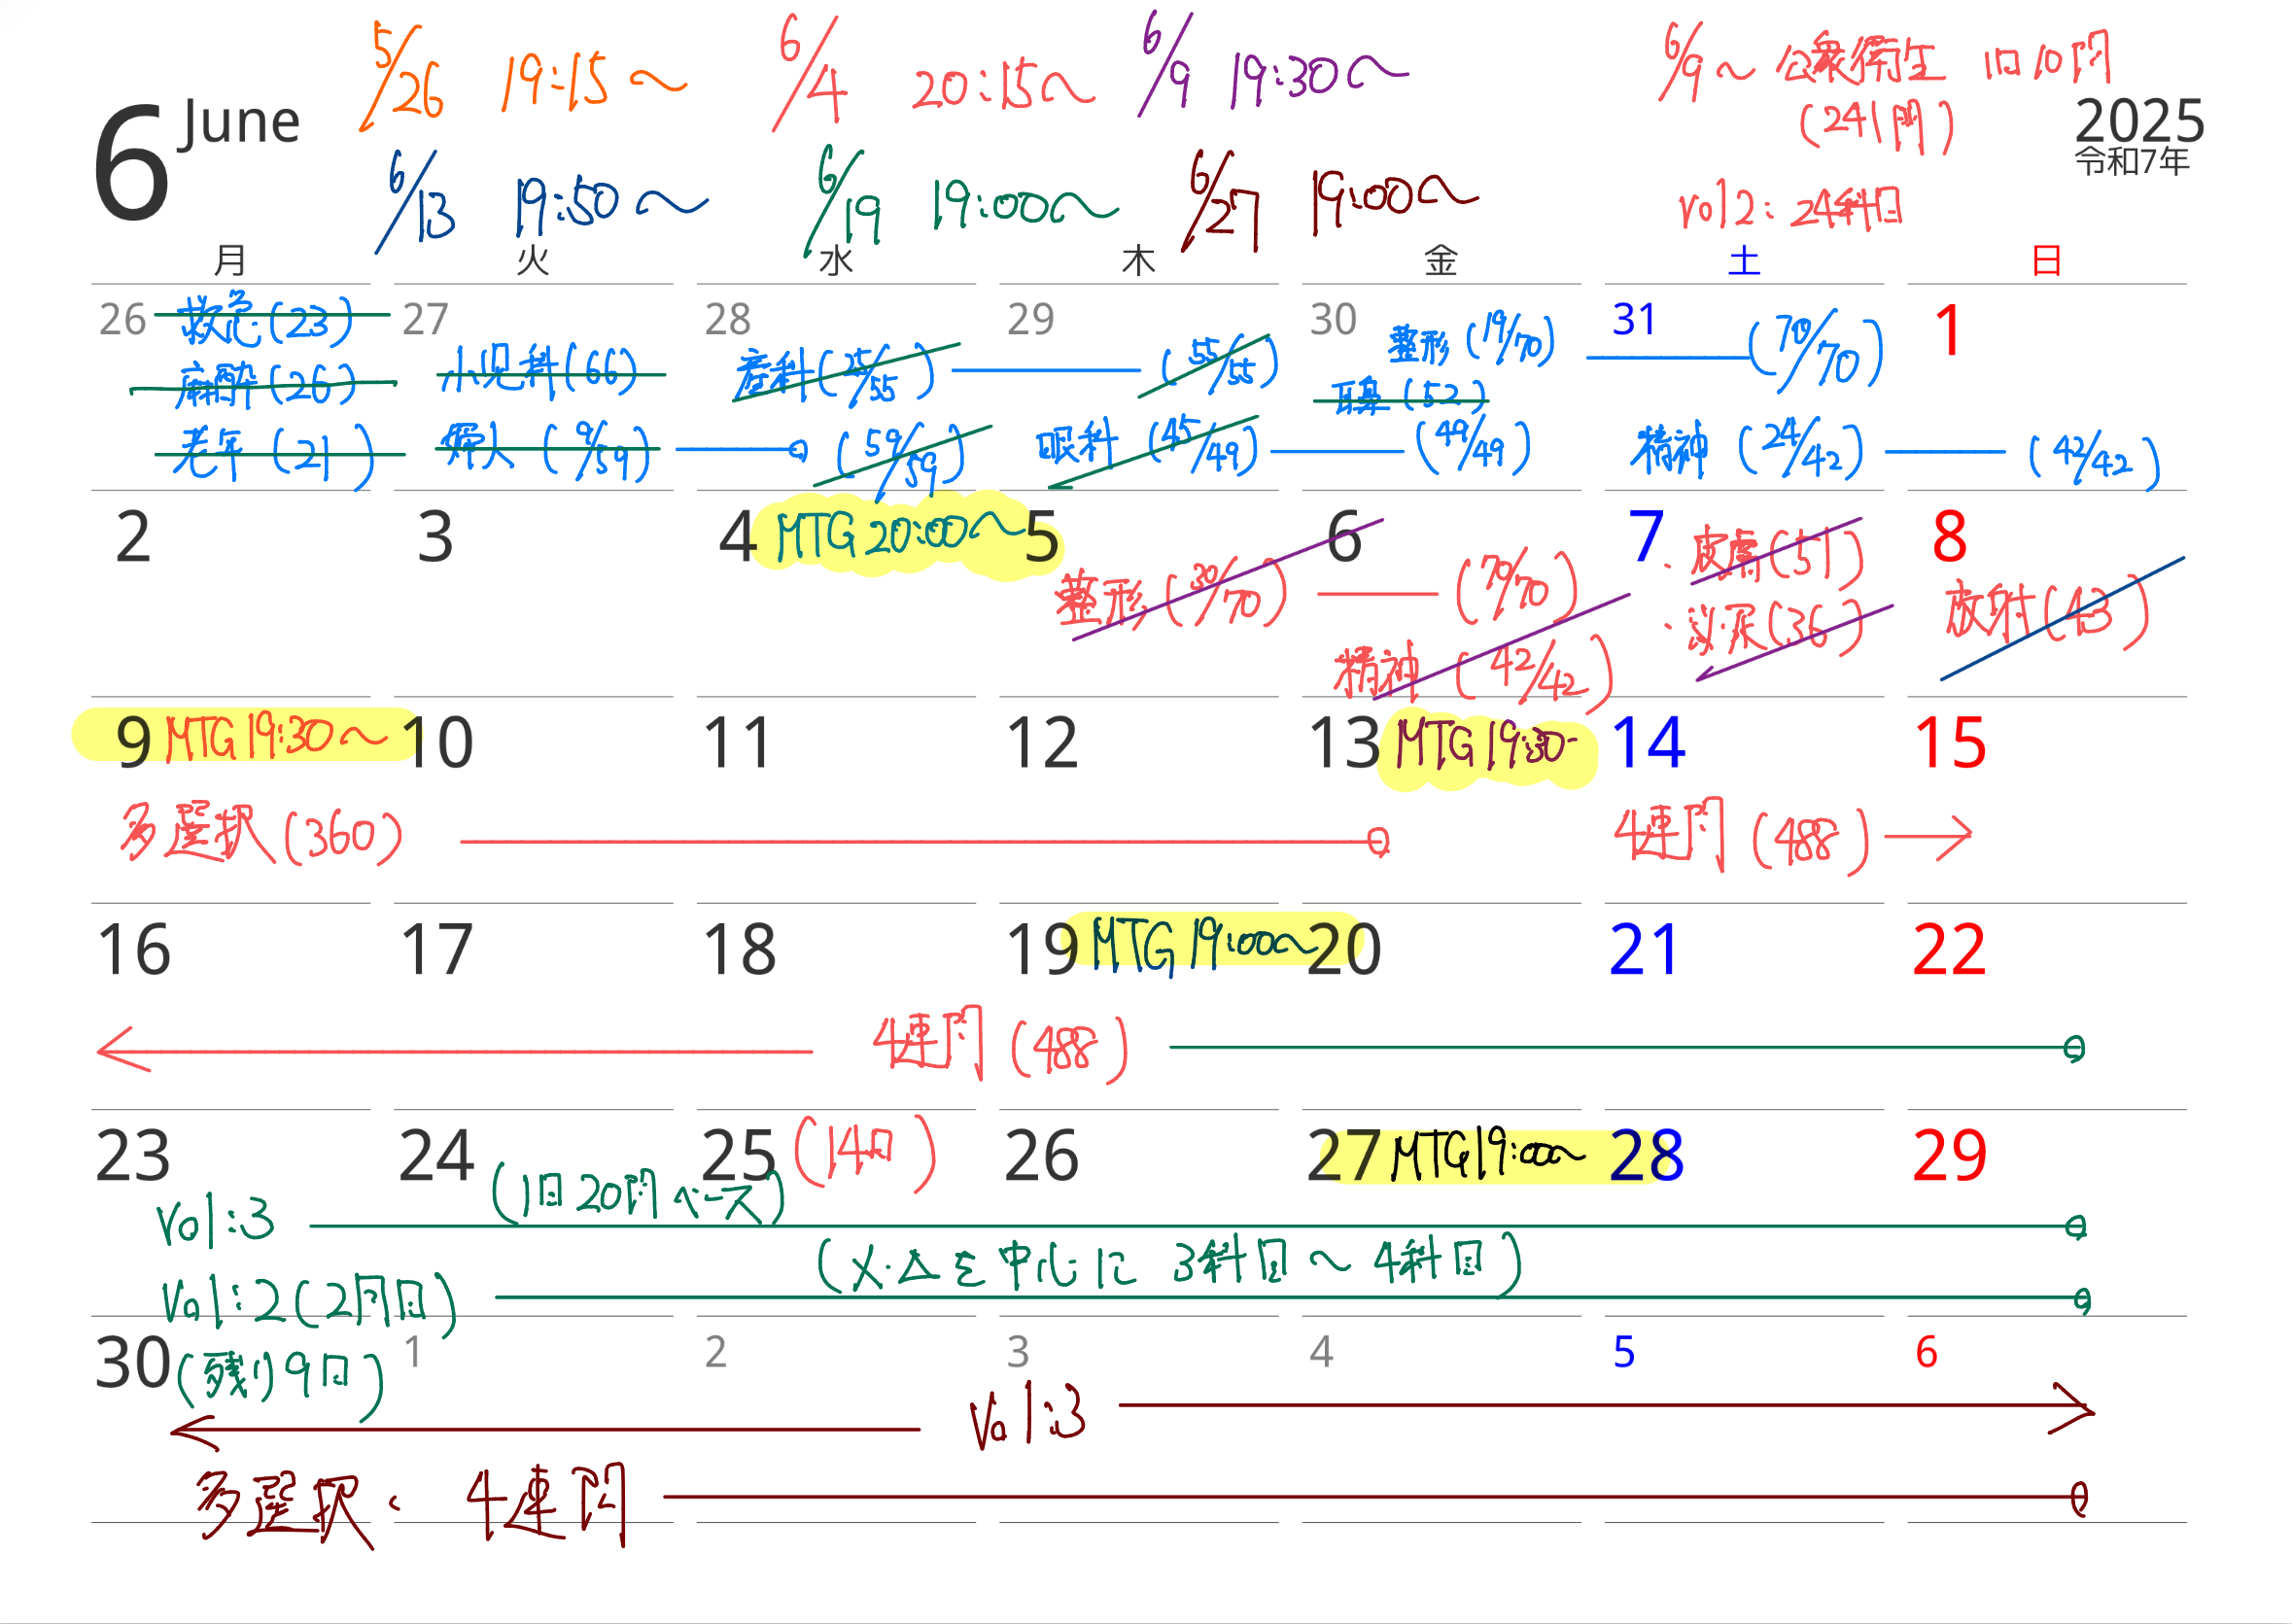 6 June
5/26 19:15〜
6/4 20:15〜
6/9 19:30〜
6/9〜公衆衛生 1日10問
(241問)
2025
令和7年
6/13 19:50〜
6/19 19:00〜
6/27 19:00〜
vol2:24科目
月 火 水 木 金 土 日
26 救急(23)
麻酔(26)
老年(21)
27
小児科(66)
婦人(9/59)
28
産科(25/55)
(59/59)
29
(55/55)
眼科(45/49)
30 整形(19/70)
耳鼻(52)
(49/49)
31
(70/70)
精神(24/42)
1
(42/42)
2
3
4 MTG 20:00〜
5
整形(30/70)
6
(70/70)
精神(42/42)
7 ・皮膚(51)
・泌尿(36)
8
放射(43)
9 MTG 19:30〜
多選択(360)
10
11
12
13 MTG 19:30-
14
4連問(488)
15
16
17
18
19 MTG 19:00〜
20
21
22
4連問(488)
23
24
25 (14日)
26
27 MTG 19:00〜
28
29
(1日20問ベース)
Vol:3
(×・△を中心に 3科目〜4科目)
Vol:2(2周目)
30 (残り9日)
1
2
3
4
5
6
Vol:3
多選択・4連問